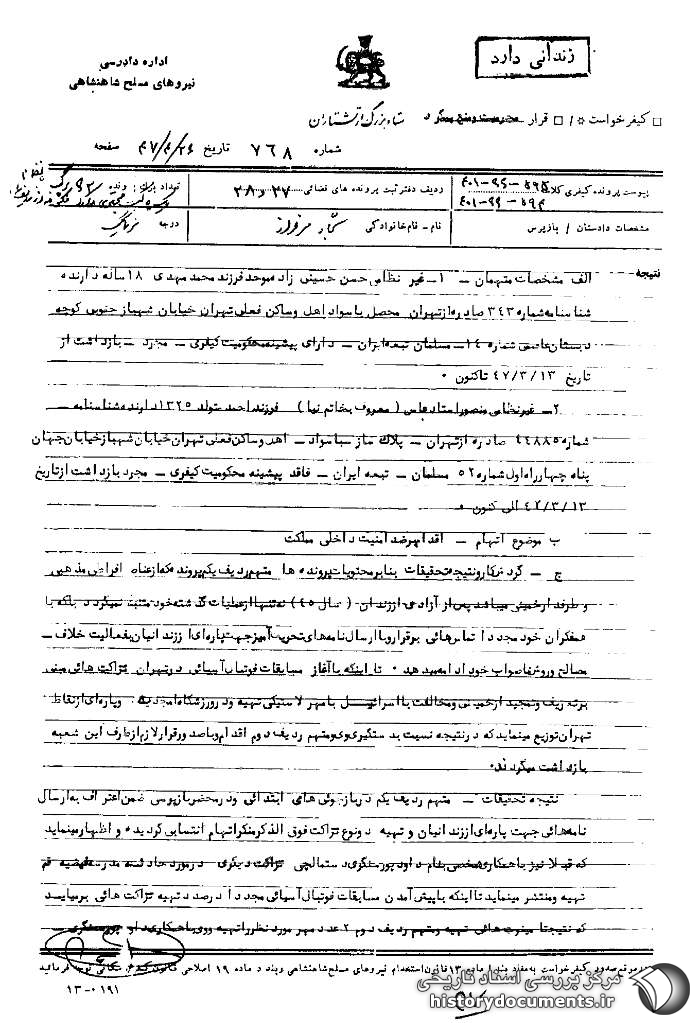 زندانی دارد
اداره دادرسی
نیروهای مسلح شاهنشاهی
کیفرخواست قرار ستاد بزرگ ارتشتاران
شماره ۷۶۸ تاریخ صفحه
پیوست پرونده کیفری کلاسه ۴۰۱-۹۹-۵۹۵ ردیف دفتر ثبت پرونده های قضائی ۲۷ و ۲۸ تعداد برگ پرونده ۹۲ برگ
۴۰۱-۹۹-۵۹۴
مشخصات دادستان / بازپرس نام - نام خانوادگی درجه
نتیجه
الف مشخصات متهمان - ۱- غیر نظامی حسن حسینی زاده موحد فرزند محمد مهدی ۱۸ ساله دارنده
شناسنامه شماره ۳۴۳ صادره از تهران محصل با سواد اهل و ساکن فعلی تهران خیابان شهباز جنوبی کوچه
دبستان شماره ۱۴ - مسلمان تبعه ایران - دارای پیشینه محکومیت کیفری - مجرد - بازداشت از
تاریخ ۴۷/۳/۱۳ تاکنون ۰
۲- غیرنظامی منصور استاد عباس ( معروف بخاتم نما ) فرزند احمد متولد ۱۳۲۵ دارنده شناسنامه
شماره ۴۴۸۸۵ صادره از تهران - پلاک ساز با سواد - اهل و ساکن فعلی تهران خیابان شهباز خیابان جهان
پناه چهارراه اول شماره ۵۲ مسلمان - تبعه ایران - فاقد پیشینه محکومیت کیفری - مجرد بازداشت از تاریخ
۴۷/۳/۱۳ الی کنون ۰
ب موضوع اتهام - اقدام بر ضد امنیت داخلی مملکت
ج - گردشکار و نتیجه تحقیقات بنابر محتویات پرونده ها متهم ردیف یکم پرونده که از عناصر افراطی مذهبی
و طرفدار خمینی میباشد پس از آزادی از زندان ( سال ۴۵ ) نه تنها از عملیات گذشته خود متنبه نمیگردد بلکه با
همفکران خود مجددا تماس هائی برقرار و با ارسال نامه های تحریف آمیز جهت پاره ای از زندانیان بفعالیت خلاف
مصالح و روش ناصواب خود ادامه میدهد ۰ تا اینکه با آغاز مسابقات فوتبال آسیائی در تهران تراکت هائی مبنی
بر تعریف و تمجید از خمینی و مخالفت با اسرائیل با مهر لاستیکی تهیه و در ورزشگاه امجدیه و پاره ای از نقاط
تهران توزیع مینماید که در نتیجه نسبت به دستگیری وی و متهم ردیف دوم اقدام و با صدور قرار لازم از طرف این شعبه
بازداشت میگردند
نتیجه تحقیقات - متهم ردیف یکم در بازجوئی های ابتدائی و در محضر بازپرسی ضمن اعتراف به ارسال
نامه هائی جهت پاره ای از زندانیان و تهیه دو نوع تراکت فوق الذکر منکر اتهام انتسابی گردیده و اظهار مینماید
که قبلا نیز با همکاری شخصی بنام داود دستمالچی تراکت دیگری در مورد حادثه مدرسه فیضیه قم
تهیه و منتشر مینماید تا اینکه با پیش آمدن مسابقات فوتبال آسیائی مجددا درصدد تهیه تراکت هائی برمیاید
که نتیجتا تهیه و متهم ردیف دوم ۲ عدد مهر مورد نظر را تهیه و وی با همکاری
در موقع صدور کیفرخواست به مفاد بند ماده ۱۳ قانون استخدام نیروهای مسلح شاهنشاهی و بند د ماده ۱۹ اصلاحی قانون توجه فرمائید
۱۳-۰۱۹۱
مرکز بررسی اسناد تاریخی
historydocuments.ir